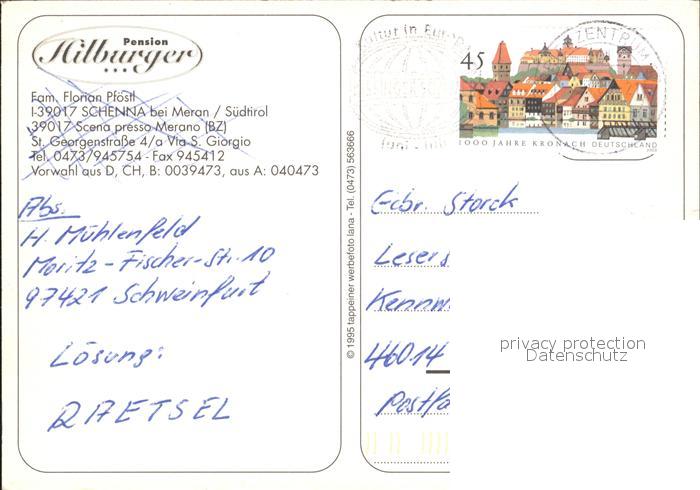 Pension
Hilburger
Fam. Florian Pföstl
I-39017 SCHENNA bei Meran / Südtirol
39017 Scena presso Merano (BZ)
St. Georgenstraße 4/a Via S. Giorgio
Tel. 0473/945754 - Fax 945412
Vorwahl aus D, CH, B: 0039473, aus A: 040473
Abs.
H. Mühlenfeld
Moritz-Fischer-Str. 10
97421 Schweinfurt
Lösung:
RAETSEL
© 1995 tappeiner werbefoto lana - Tel. (0473) 563666
Kultur in Europa
ZENTRUM
45
1000 JAHRE KRONACH DEUTSCHLAND
Gebr. Storck
Lesers
Kennw
460.14
Postfa
privacy protection
Datenschutz